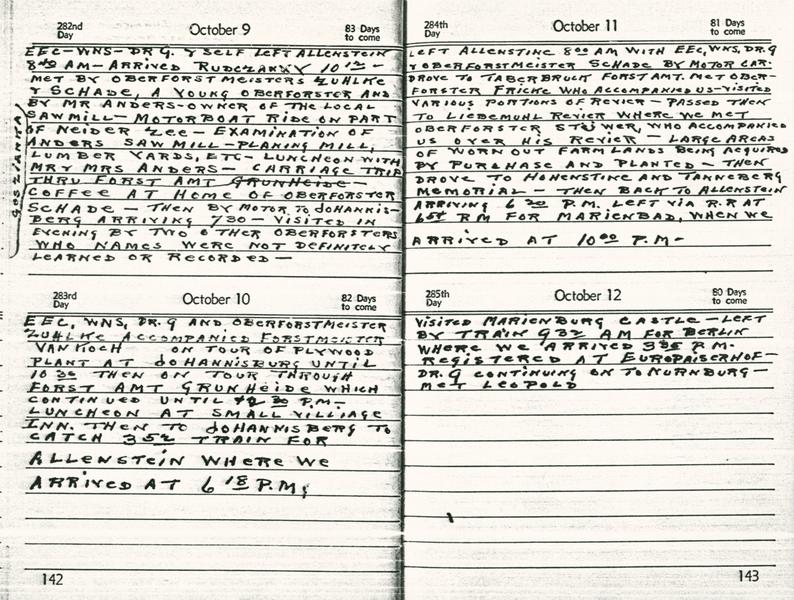 282nd Day October 9 83 Days to come
EEC-WNS-DR G. & SELF LEFT ALLENSTEIN
8 40 AM-ARRIVED RUDCZANNY 10 12 -
MET BY OBERFORSTMEISTERS ZUHLKE
& SCHADE, A YOUNG OBERFORSTER AND
BY MR ANDERS-OWNER OF THE LOCAL
SAWMILL-MOTORBOAT RIDE ON PART
OF NEIDER ZEE-EXAMINATION OF
ANDERS SAW MILL-PLANING MILL,
LUMBER YARDS, ETC-LUNCHEON WITH
MR & MRS ANDERS-CARRIAGE TRIP
THRU FORST AMT GRUNHEIDE-
COFFEE AT HOME OF OBERFORSTER
SCHADE-THEN BY MOTOR TO JOHANNIS-
BERG ARRIVING 730-VISITED IN
EVENING BY TWO OTHER OBERFORSTERS
WHO NAMES WERE NOT DEFINITELY
LEARNED OR RECORDED-
283rd Day October 10 82 Days to come
EEC, WNS, DR. G AND OBERFORSTMEISTER
ZUHLKE ACCOMPANIED FORSTMEISTER
VAN KOCH ON TOUR OF PLYWOOD
PLANT AT JOHANNISBURG UNTIL
10 30 THEN ON TOUR THROUGH
FORST AMT GRUNHEIDE WHICH
CONTINUED UNTIL 30 P.M-
LUNCHEON AT SMALL VILLIAGE
INN. THEN TO JOHANNISBERG TO
CATCH 3 52 TRAIN FOR
ALLENSTEIN WHERE WE
ARRIVED AT 6 18 P.M,
142
284th Day October 11 81 Days to come
LEFT ALLENSTINE 8 00 AM WITH EEC, WNS, DR.G
& OBERFORSTMEISTER SCHADE BY MOTOR CAR.
DROVE TO TABERBRUCK FORST AMT. MET OBER-
FORSTER FRICKE WHO ACCOMPANIED US-VISITED
VARIOUS PORTIONS OF REVIER-PASSED THEN
TO LIEDEMUHL REVIER WHERE WE MET
OBERFORSTER STEIWER, WHO ACCOMPANIED
US OVER HIS REVIER-LARGE AREAS
OF WORN OUT FARM LANDS BEING AQUIRED
BY PURCHASE AND PLANTED-THEN
DROVE TO HOHENSTINE AND TANNEBERG
MEMORIAL-THEN BACK TO ALLENSTEIN
ARRIVING 6 30 P.M. LEFT VIA R.R AT
PM FOR MARIENBAD, WHEN WE
ARRIVED AT 10 00 P.M-
285th Day October 12 80 Days to come
VISITED MARIENBURG CASTLE-LEFT
BY TRAIN 9 32 AM FOR BERLIN
WHERE WE ARRIVED 3 35 P.M.
REGISTERED AT EUROPAISERHOF-
DR. G CONTINUING ON TO NURNBURG-
MET LEOPOLD
143